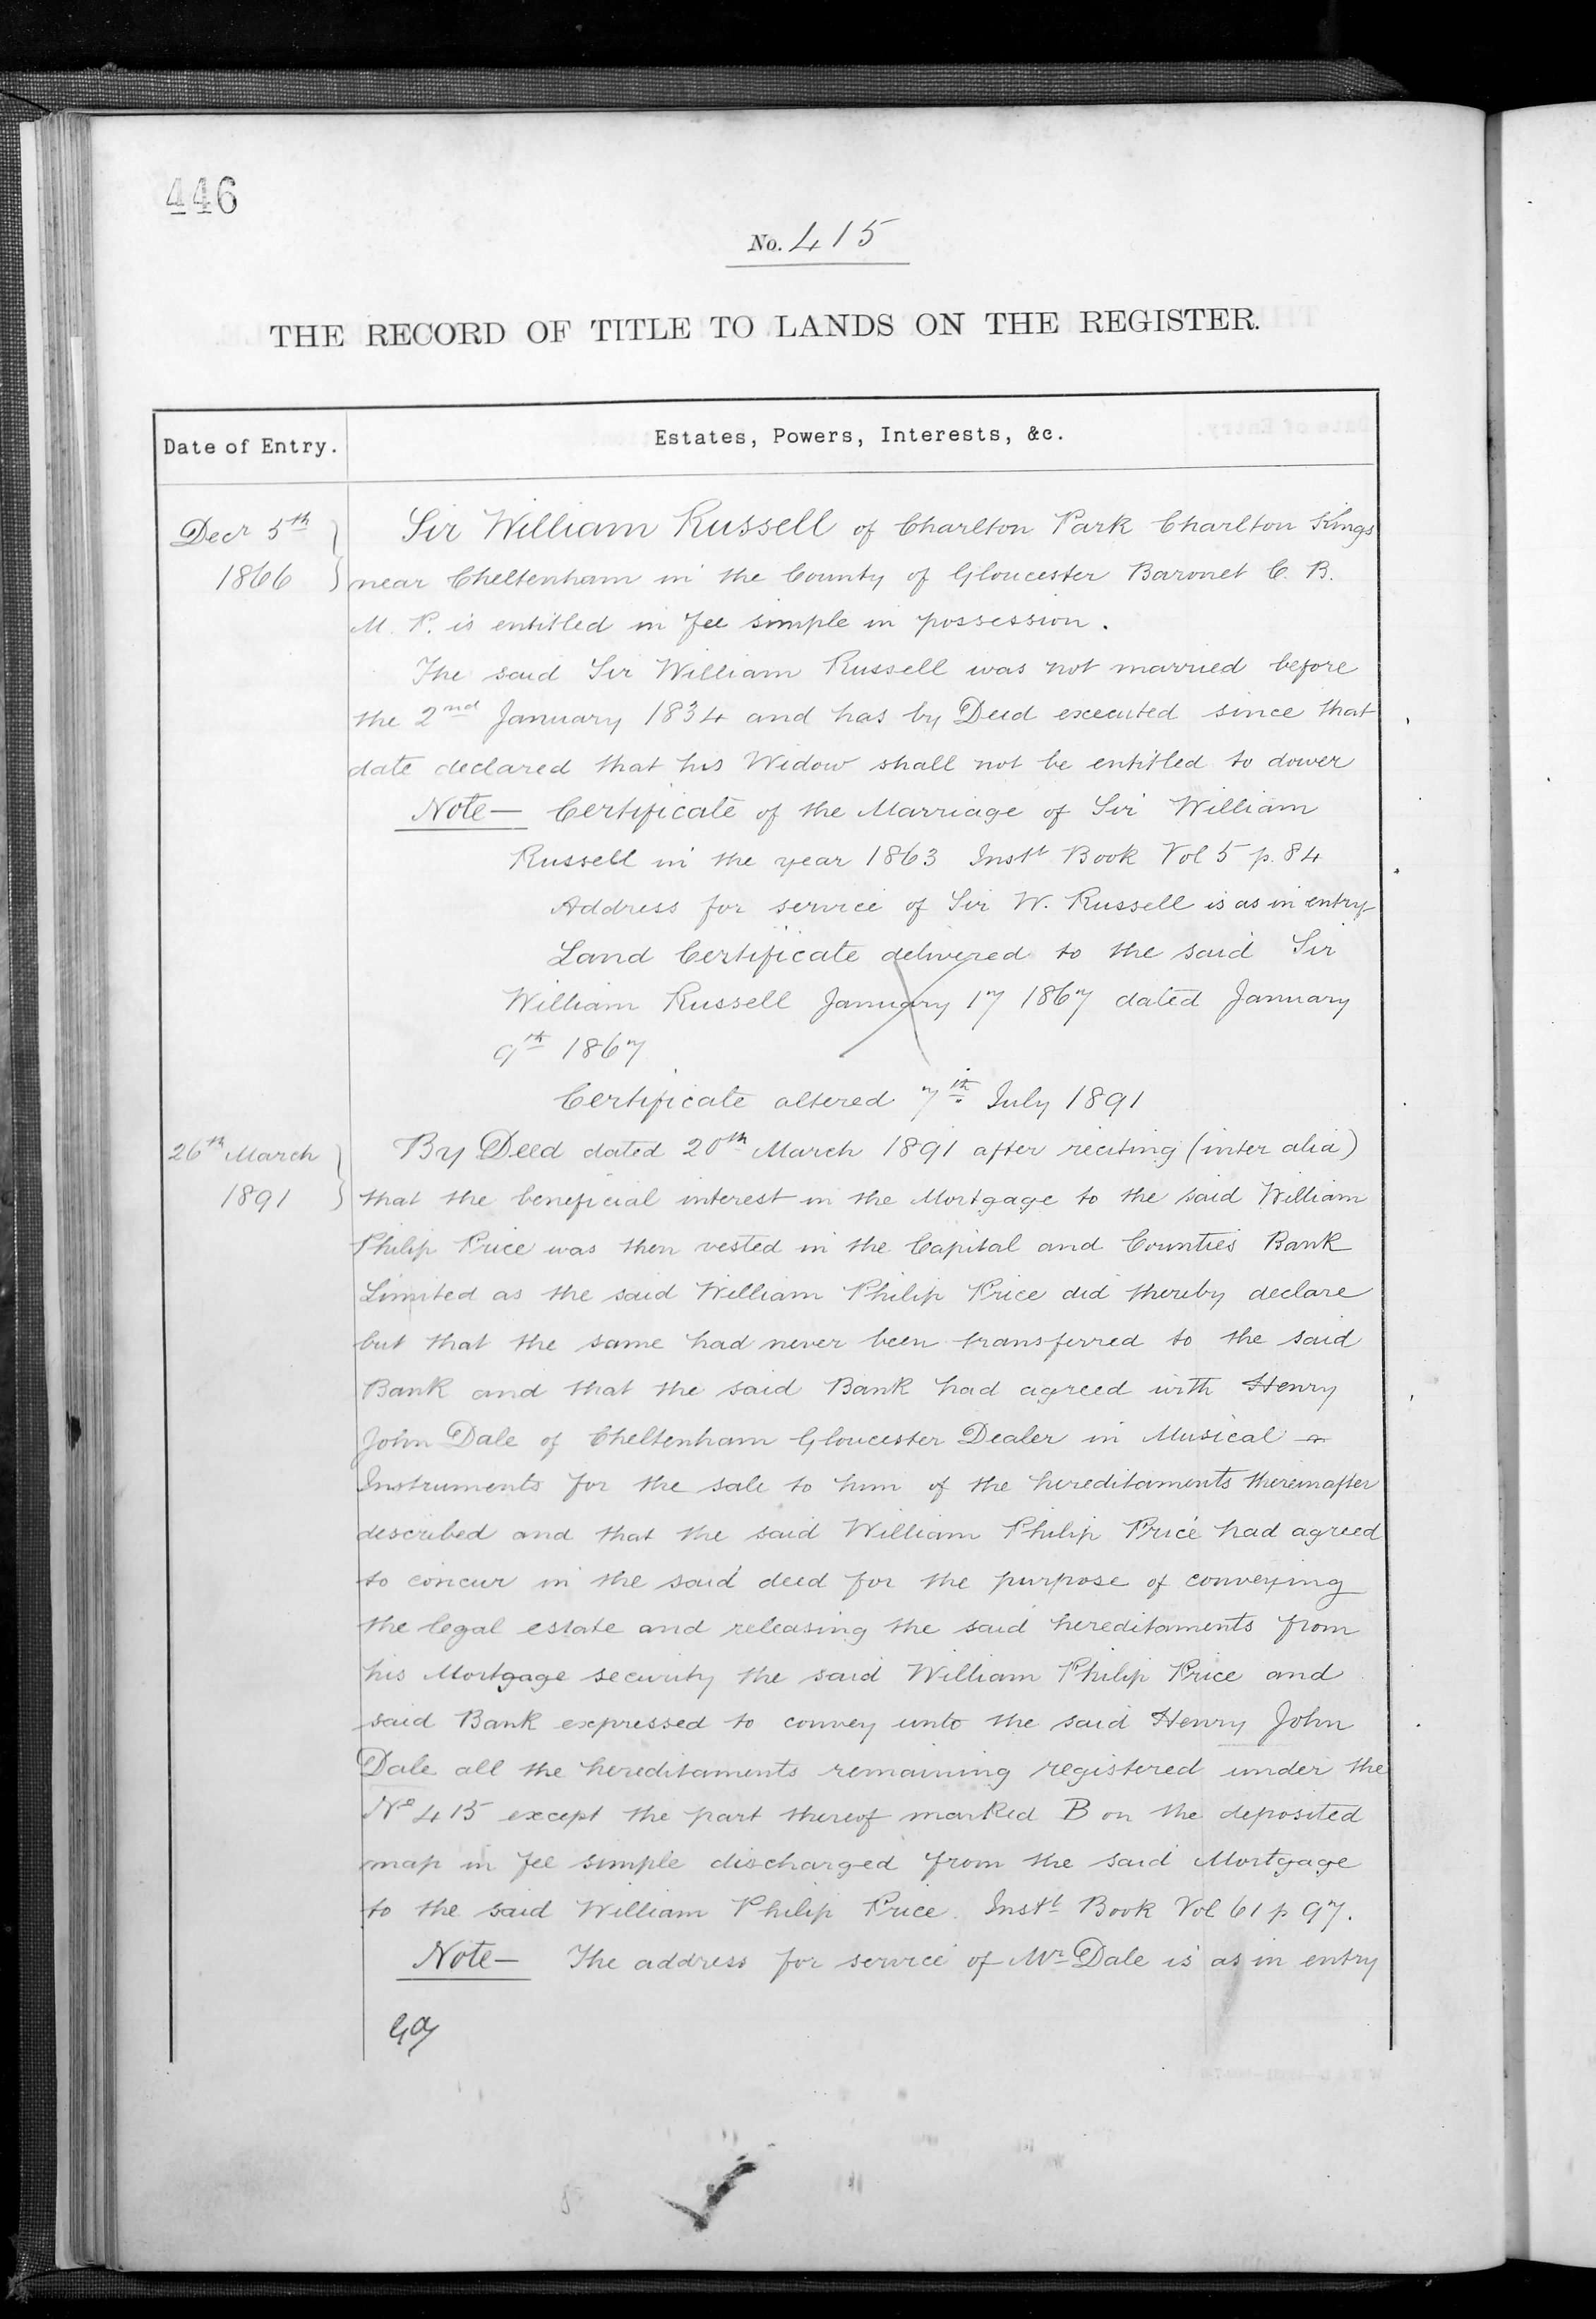 446
No. 415
THE RECORD OF TITLE TO LANDS ON THE REGISTER.
Date of Entry.
Estates, Powers, Interests, &c.
Decr 5th
1866
Sir William Russell of Charlton Park Charlton Kings
near Cheltenham in the County of Gloucester Baronet C. B.
M. P. is entitled in fee simple in possession.
The said Sir William Russell was not married before
the 2nd January 1834 and has by Deed executed since that
date declared that his Widow shall not be entitled to dower
Note— Certificate of the Marriage of Sir William
Russell in the year 1863 Instt Book Vol 5 p. 84
Address for service of Sir W. Russell is as in entry
Land Certificate delivered to the said Sir
William Russell January 17 1867 dated January
9th 1867
Certificate altered 7th July 1891
26th March
1891
By Deed dated 20th March 1891 after reciting (inter alia)
that the beneficial interest in the Mortgage to the said William
Philip Price was then vested in the Capital and Counties Bank
Limited as the said William Philip Price did thereby declare
but that the same had never been transferred to the said
Bank and that the said Bank had agreed with Henry
John Dale of Cheltenham Gloucester Dealer in Musical
Instruments for the sale to him of the hereditaments thereinafter
described and that the said William Philip Price had agreed
to concur in the said deed for the purpose of conveying
the legal estate and releasing the said hereditaments from
his Mortgage security the said William Philip Price and
said Bank expressed to convey unto the said Henry John
Dale all the hereditaments remaining registered under the
No 415 except the part thereof marked B on the deposited
map in fee simple discharged from the said Mortgage
to the said William Philip Price. Instt Book Vol 61 p 97.
Note— The address for service of Mr Dale is as in entry